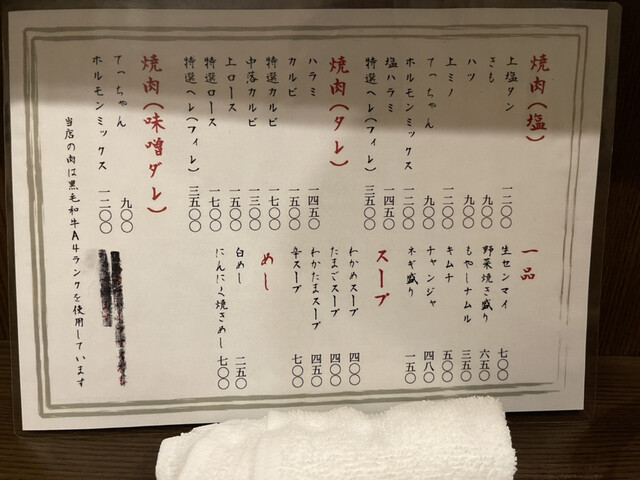 焼肉(塩)
上塩タン 一二〇〇
きも 九〇〇
ハツ 九〇〇
上ミノ 一二〇〇
てっちゃん 九〇〇
ホルモンミックス 一二〇〇
塩ハラミ 一四五〇
特選ヘレ(フィレ) 三五〇〇
焼肉(タレ)
ハラミ 一四五〇
カルビ 一五〇〇
特選カルビ 一七〇〇
中落カルビ 一三〇〇
上ロース 一五〇〇
特選ロース 一七〇〇
特選ヘレ(フィレ) 三五〇〇
焼肉(味噌ダレ)
てっちゃん 九〇〇
ホルモンミックス 一二〇〇
一品
生センマイ 七〇〇
野菜焼き盛り 六五〇
もやしナムル 三五〇
キムチ 五〇〇
チャンジャ 四八〇
ネギ盛り 一五〇
スープ
わかめスープ 四〇〇
たまごスープ 四〇〇
わかたまスープ 四五〇
辛スープ 七〇〇
めし
白めし 二五〇
にんにく焼きめし 七〇〇
当店の肉は黒毛和牛A4ランクを使用しています